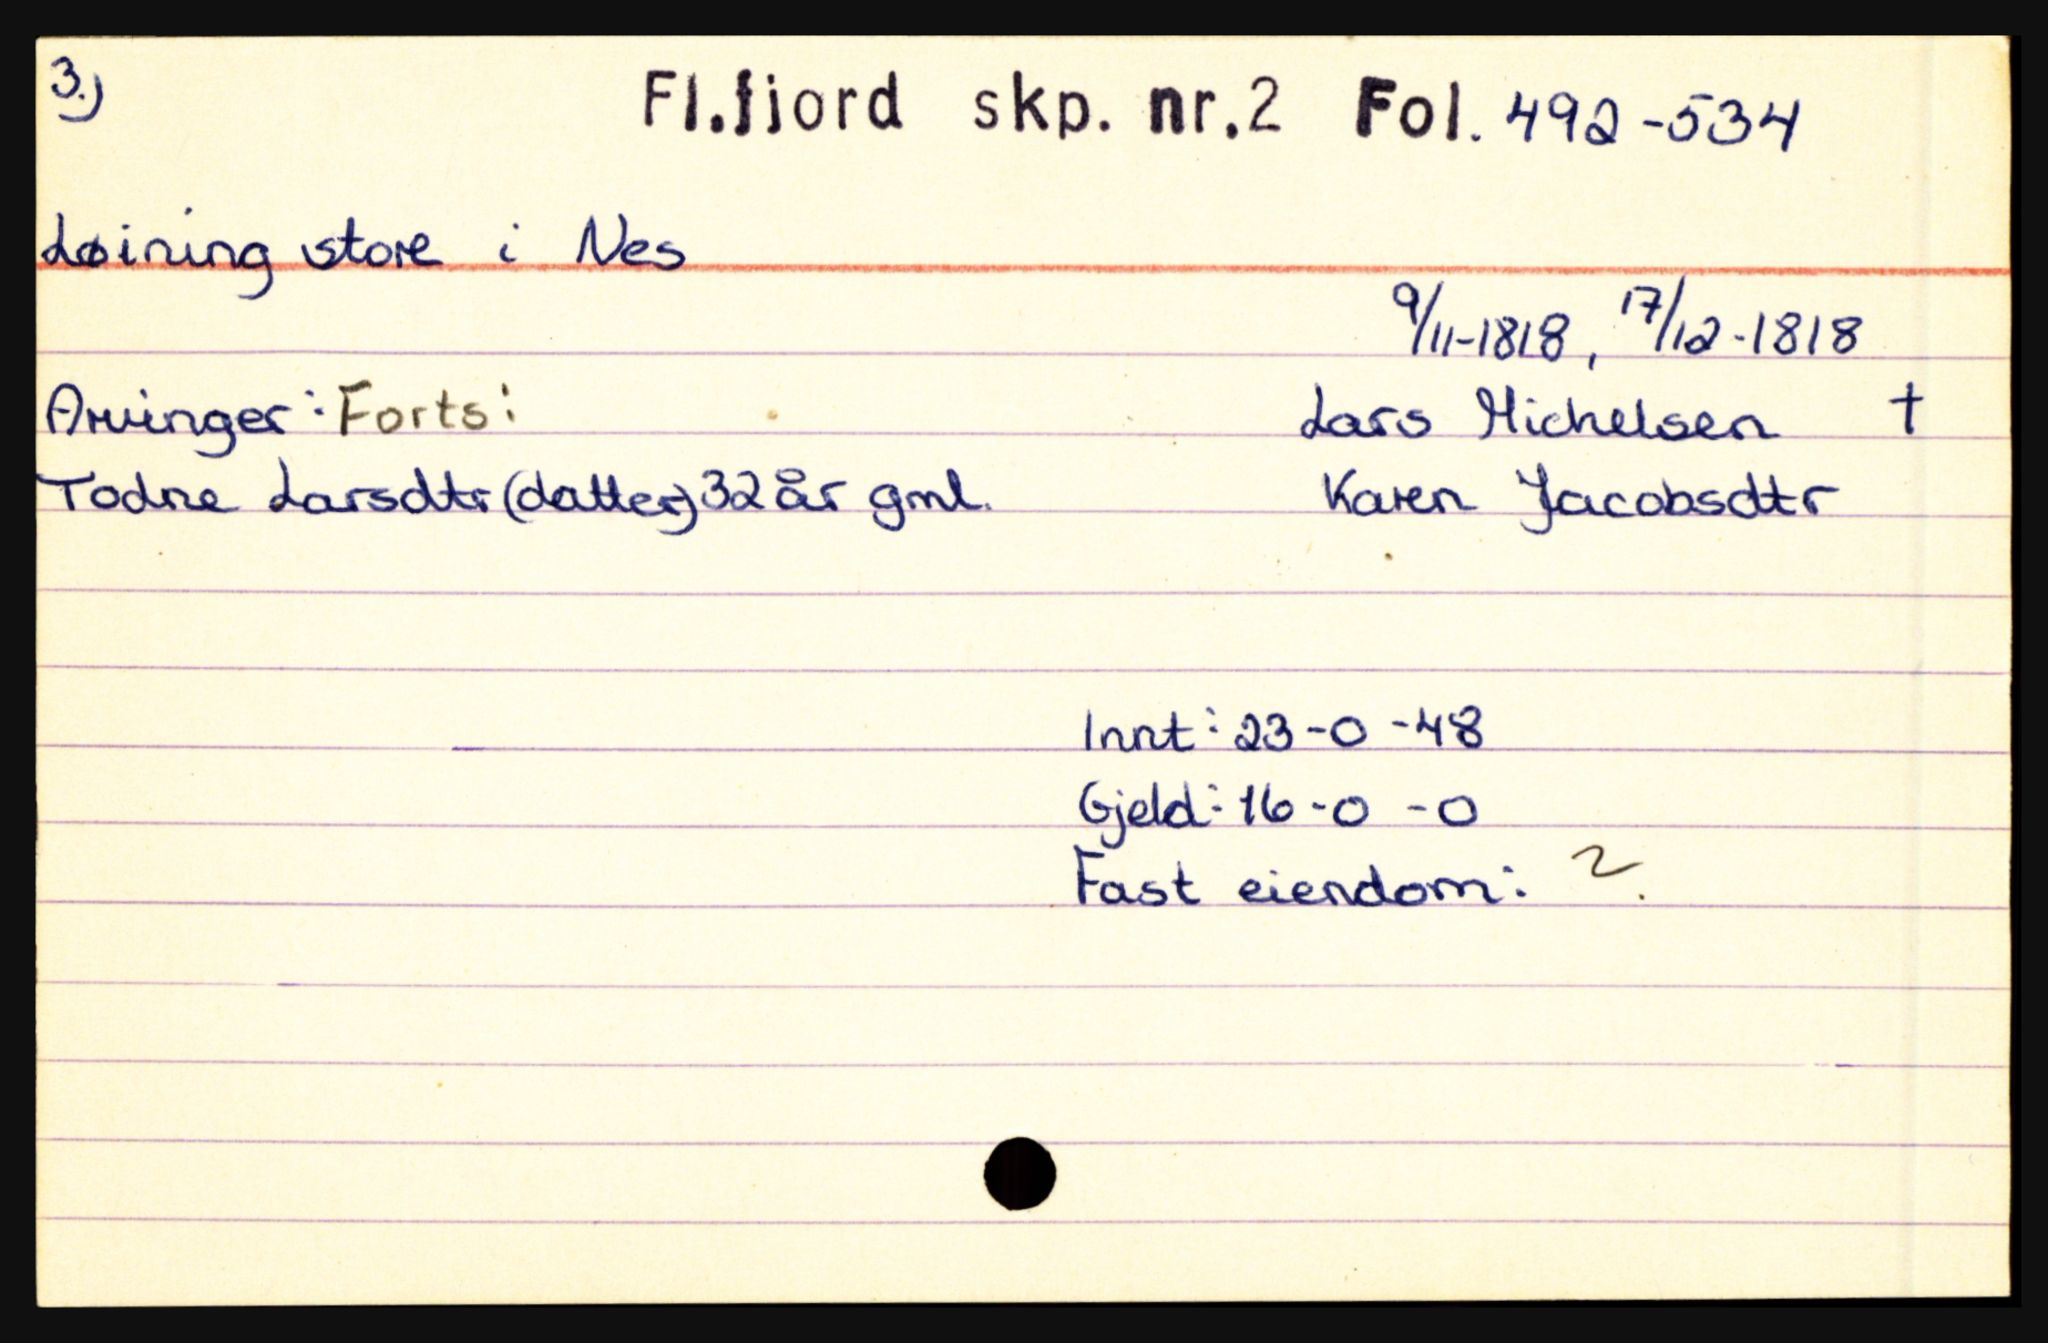 3.)
Fl.fjord skp. nr.2 Fol. 492-534
Løining store i Nes
9/11-1818, 17/12-1818
Arvinger: Forts:
Lars Michelsen †
Todne Larsdtr (datter) 32 år gml.
Karen Jacobsdtr
Innt: 23-0-48
Gjeld: 16-0-0
Fast eiendom: